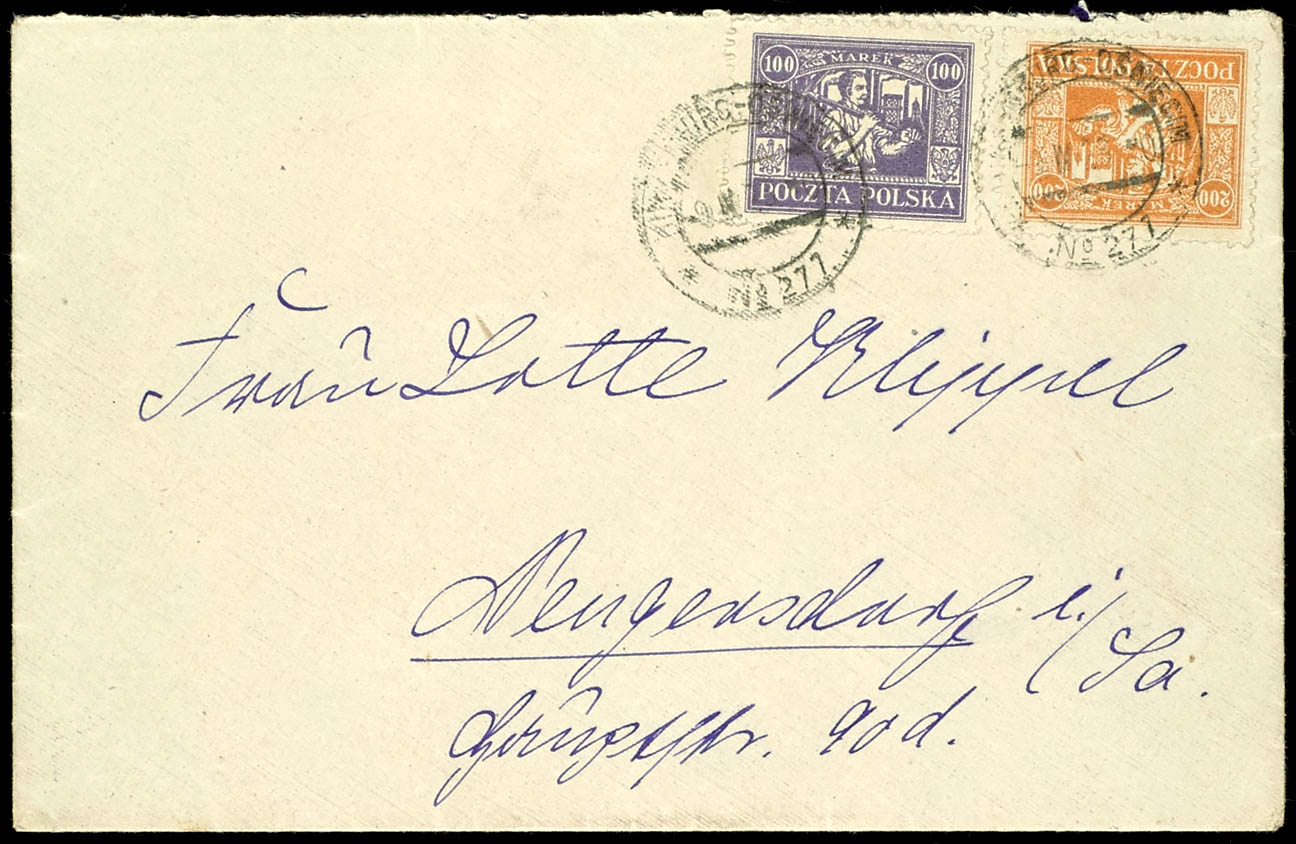 100 MAREK 100
POCZTA POLSKA
POCZTA POLSKA
200 MAREK 200
No 277
No 277
Frau Lotte Klippel
Neugersdorf i/Sa.
Hauptstr. 90d.